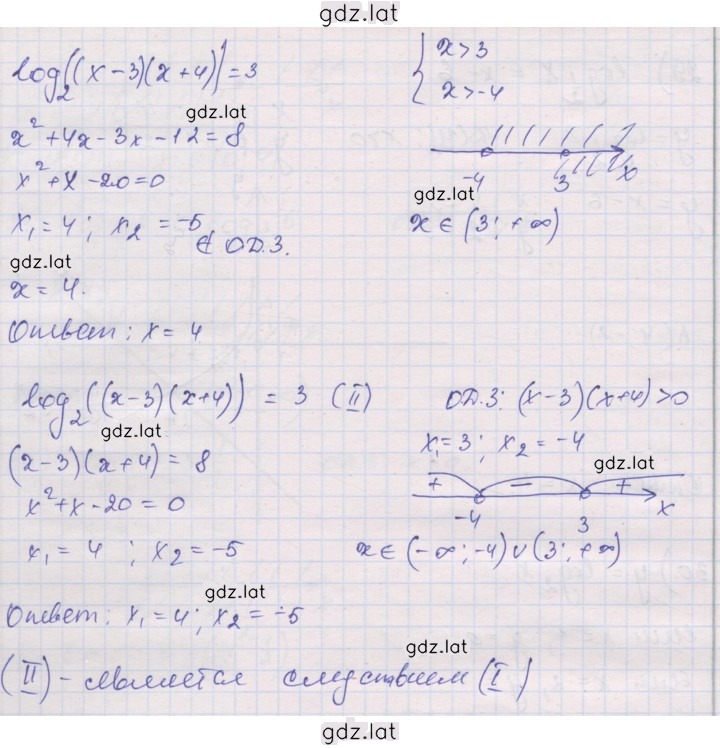 gdz.lat
log₂((x-3)(x+4))=3
{ x>3
x>-4
gdz.lat
x²+4x-3x-12=8
x²+x-20=0
-4 3 x
gdz.lat
x₁=4; x₂=-5 ∉ ОД.З.
x∈(3;+∞)
gdz.lat
x=4.
Ответ: x=4
log₂((x-3)(x+4)) = 3 (II)
ОД.З: (x-3)(x+4)>0
gdz.lat
x₁=3; x₂=-4
(x-3)(x+4)=8
gdz.lat
+ - +
x²+x-20=0
-4 3 x
x₁=4; x₂=-5
x∈(-∞;-4)∪(3;+∞)
gdz.lat
Ответ: x₁=4; x₂=-5
gdz.lat
(II)-является следствием (I)
gdz.lat